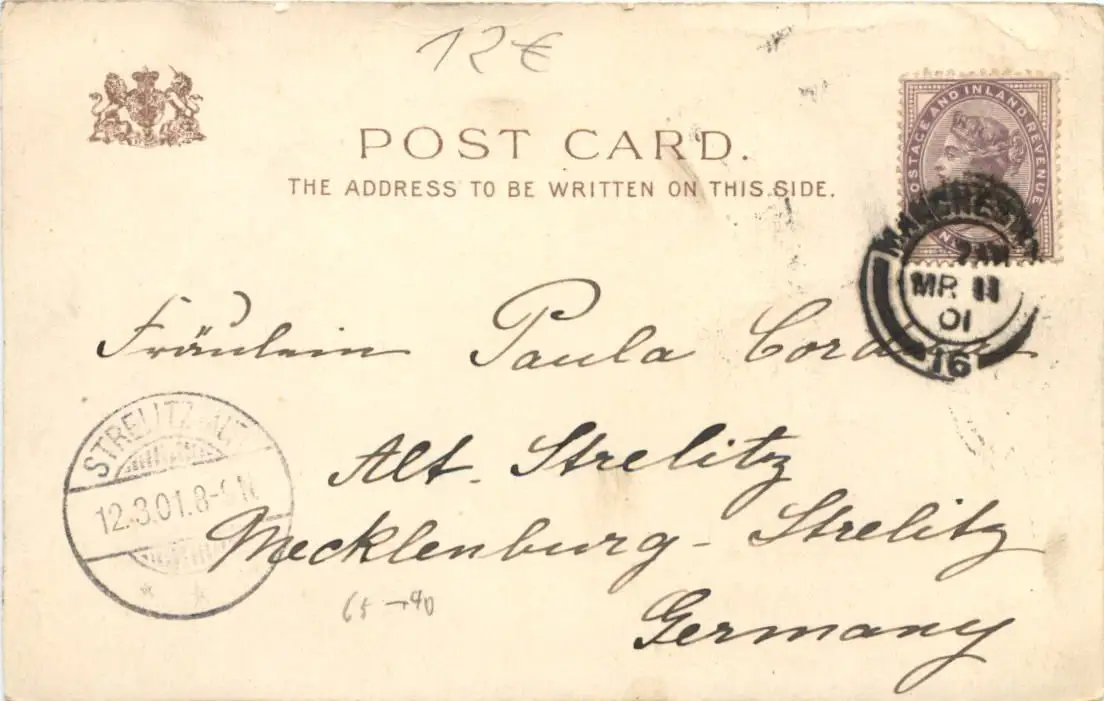 12 €
POST CARD.
THE ADDRESS TO BE WRITTEN ON THIS SIDE.
POSTAGE AND INLAND REVENUE
MANCHESTER
9 AM
MR 11
01
16
Fräulein Paula
Alt Strelitz
Mecklenburg - Strelitz
Germany
STRELITZ
12.3.01.8-9 N
65